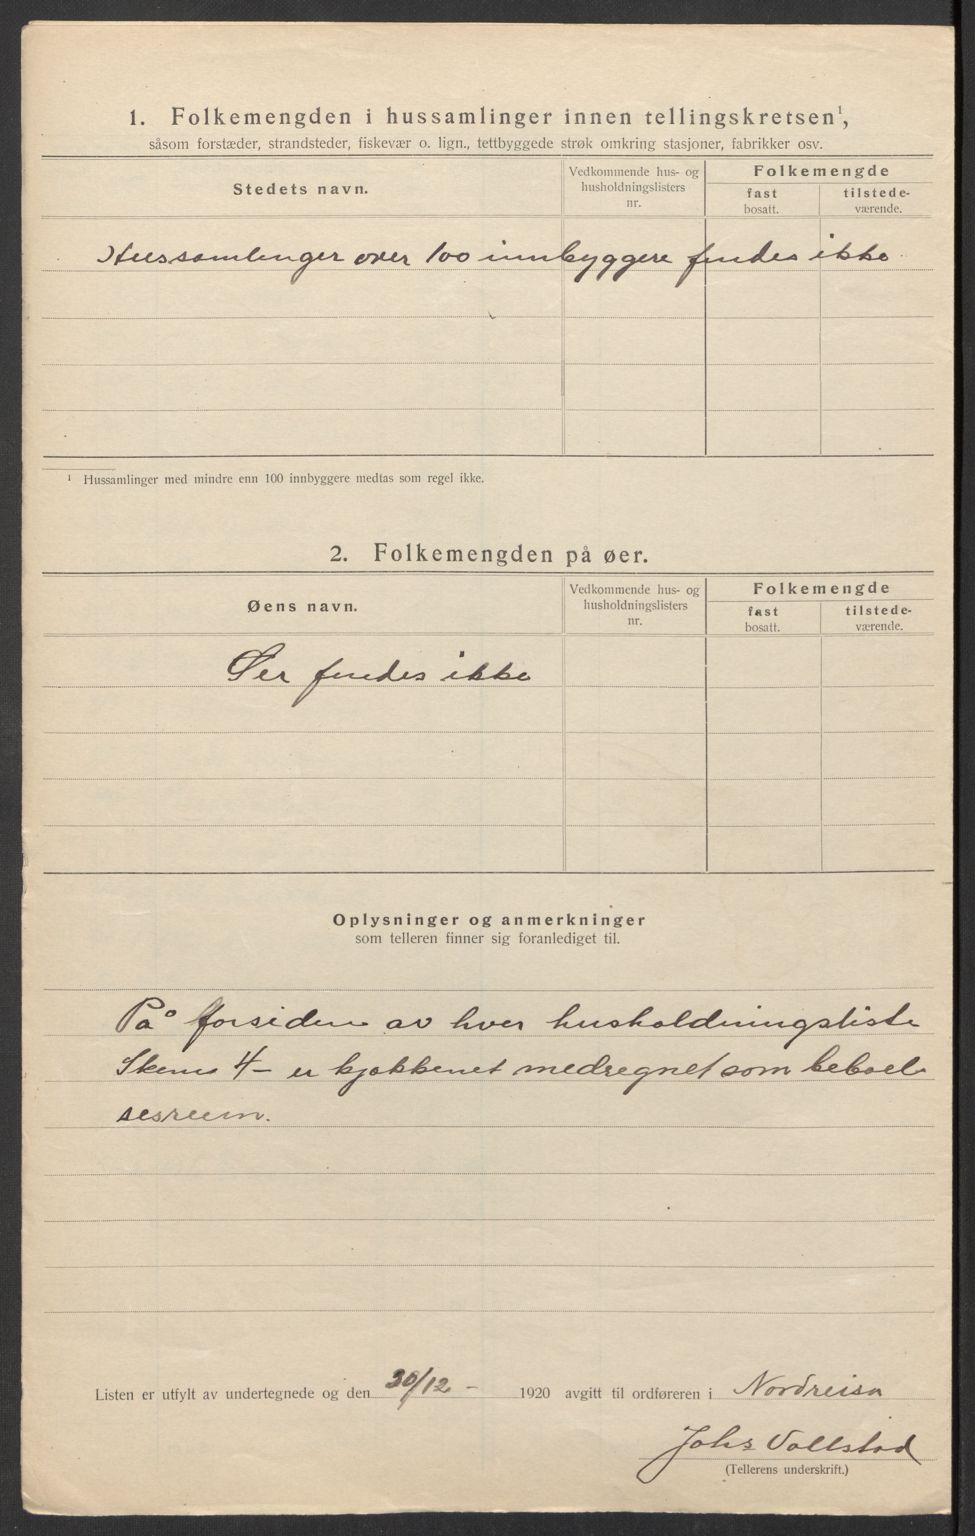 1. Folkemengden i hussamlinger innen tellingskretsen¹,
såsom forstæder, strandsteder, fiskevær o. lign., tettbyggede strøk omkring stasjoner, fabrikker osv.
Stedets navn.
Vedkommende hus- og
husholdningslisters
nr.
Folkemengde
fast
bosatt.
tilstede-
værende.
Hussamlinger over 100 innbyggere findes ikke
¹ Hussamlinger med mindre enn 100 innbyggere medtas som regel ikke.
2. Folkemengden på øer.
Øens navn.
Vedkommende hus- og
husholdningslisters
nr.
Folkemengde
fast
bosatt.
tilstede-
værende.
Øer findes ikke
Oplysninger og anmerkninger
som telleren finner sig foranlediget til.
På forsiden av hver husholdningsliste
Skema 4 – er kjøkkenet medregnet som beboel-
sesrum.
Listen er utfylt av undertegnede og den 30/12 – 1920 avgitt til ordføreren i Nordreisa
Johs Vallstad
(Tellerens underskrift.)